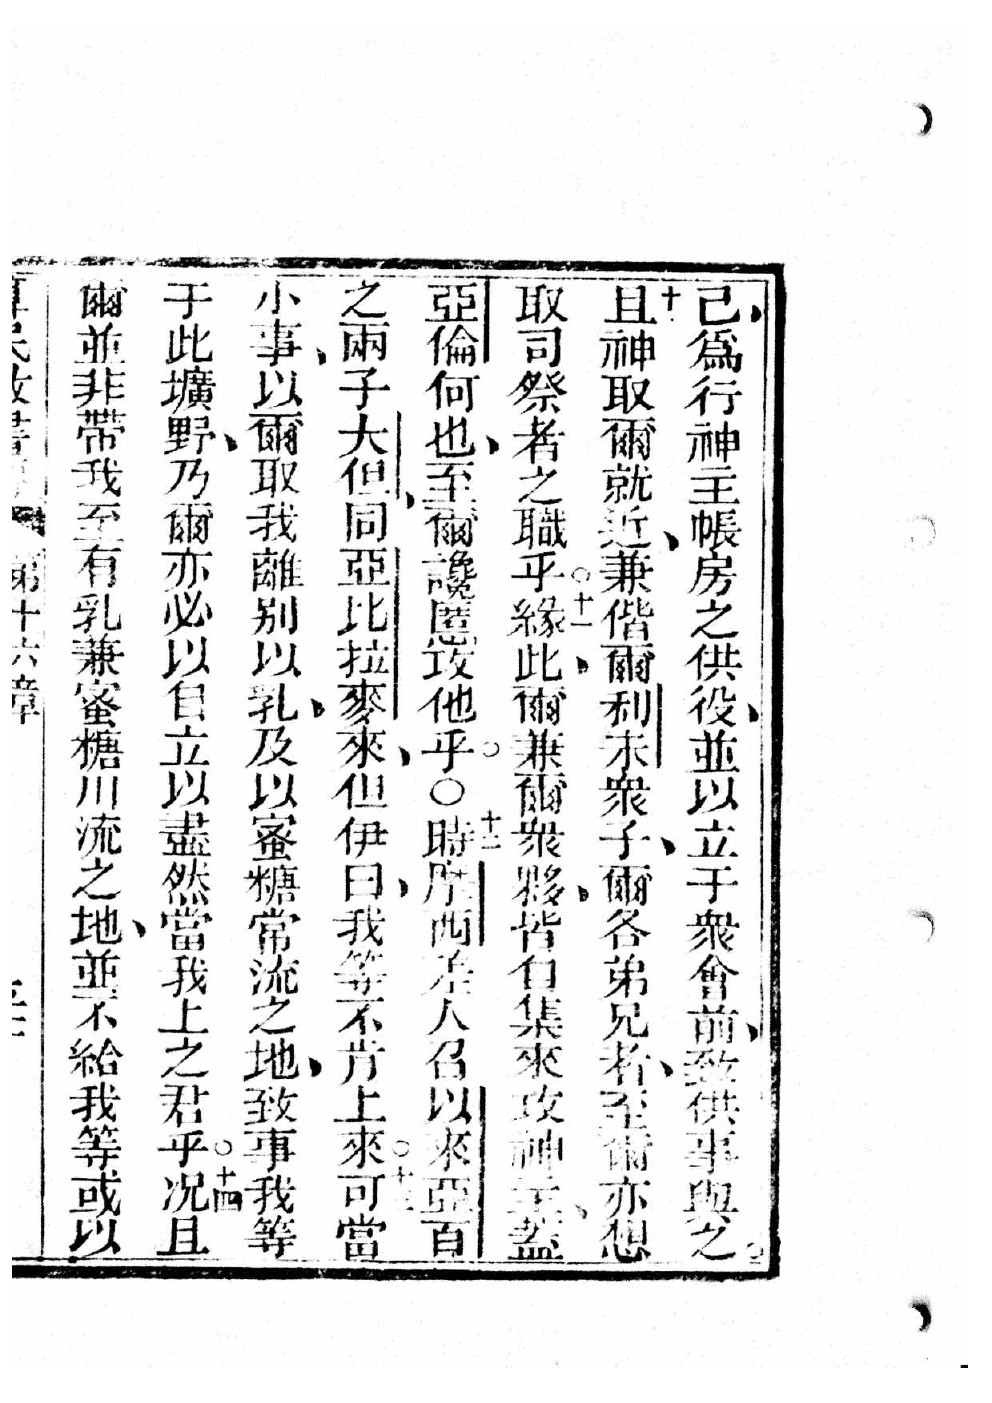 己、爲行神主帳房之供役、並以立于衆會前、致供事與之
十且神取爾就近、兼偕爾利未衆子、爾各弟兄者、至爾亦想
取司祭者之職乎。十一緣此、爾兼爾衆夥、皆自集來攻神主、蓋
亞倫何也、至爾讒慝攻他乎。○十二時摩西差人召以來亞百
之兩子大但、同亞比拉麥來、但伊曰、我等不肯上來。十三可當
小事、以爾取我離别以乳、及以蜜糖常流之地、致事我等
于此壙野、乃爾亦必以自立以盡然當我上之君乎。十四况且
爾並非帶我至有乳兼蜜糖川流之地、並不給我等或以
第十六章